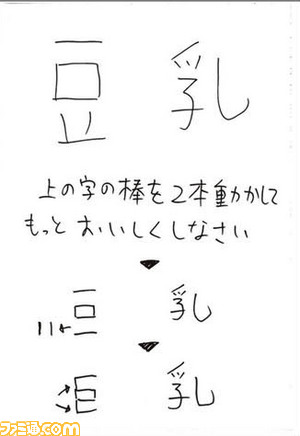 豆乳
上の字の棒を2本動かして
もっとおいしくしなさい
▼
豆乳
▼
巨乳
ファミ通.com